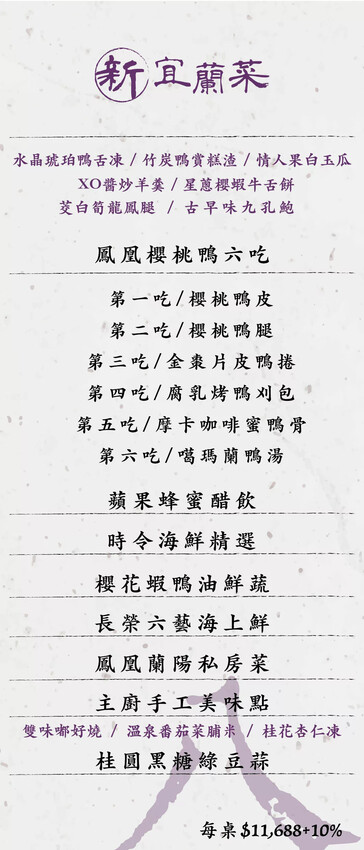 新宜蘭菜
水晶琥珀鴨舌凍 / 竹炭鴨賞糕渣 / 情人果白玉瓜
XO醬炒羊羹 / 星蔥櫻蝦牛舌餅
茭白筍龍鳳腿 / 古早味九孔鮑
鳳凰櫻桃鴨六吃
第一吃/櫻桃鴨皮
第二吃/櫻桃鴨腿
第三吃/金棗片皮鴨捲
第四吃/腐乳烤鴨刈包
第五吃/摩卡咖啡蜜鴨骨
第六吃/噶瑪蘭鴨湯
蘋果蜂蜜醋飲
時令海鮮精選
櫻花蝦鴨油鮮蔬
長榮六藝海上鮮
鳳凰蘭陽私房菜
主廚手工美味點
雙味嘟好燒 / 溫泉番茄菜脯米 / 桂花杏仁凍
桂圓黑糖綠豆蒜
每桌 $11,688+10%